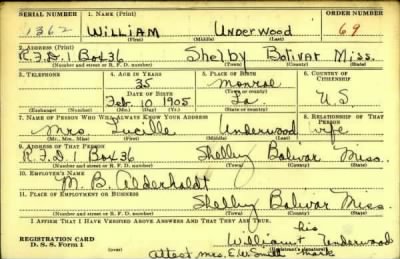 SERIAL NUMBER 1. NAME (Print) ORDER NUMBER
1362 WILLIAM Underwood 69
(First) (Middle) (Last)
2. ADDRESS (Print)
R.F.D. 1 Box 36 Shelby Bolivar Miss.
(Number and street or R. F. D. number) (Town) (County) (State)
3. TELEPHONE 4. AGE IN YEARS 5. PLACE OF BIRTH 6. COUNTRY OF CITIZENSHIP
35 Monroe
DATE OF BIRTH (Town or county)
Feb. 10 1905 La. U.S
(Exchange) (Number) (Mo.) (Day) (Yr.) (State or country)
7. NAME OF PERSON WHO WILL ALWAYS KNOW YOUR ADDRESS 8. RELATIONSHIP OF THAT PERSON
Mrs Lucille Underwood wife
(Mr., Mrs., Miss) (First) (Middle) (Last)
9. ADDRESS OF THAT PERSON
R.F.D 1 Box 36 Shelby Bolivar Miss.
(Number and street or R. F. D. number) (Town) (County) (State)
10. EMPLOYER'S NAME
M. B. Alderholdt
11. PLACE OF EMPLOYMENT OR BUSINESS
Shelby Bolivar Miss.
(Number and street or R. F. D. number) (Town) (County) (State)
I AFFIRM THAT I HAVE VERIFIED ABOVE ANSWERS AND THAT THEY ARE TRUE.
his
REGISTRATION CARD William + Underwood
D. S. S. Form 1 (Registrant's signature)
Attest Mrs. E.W. Smith mark